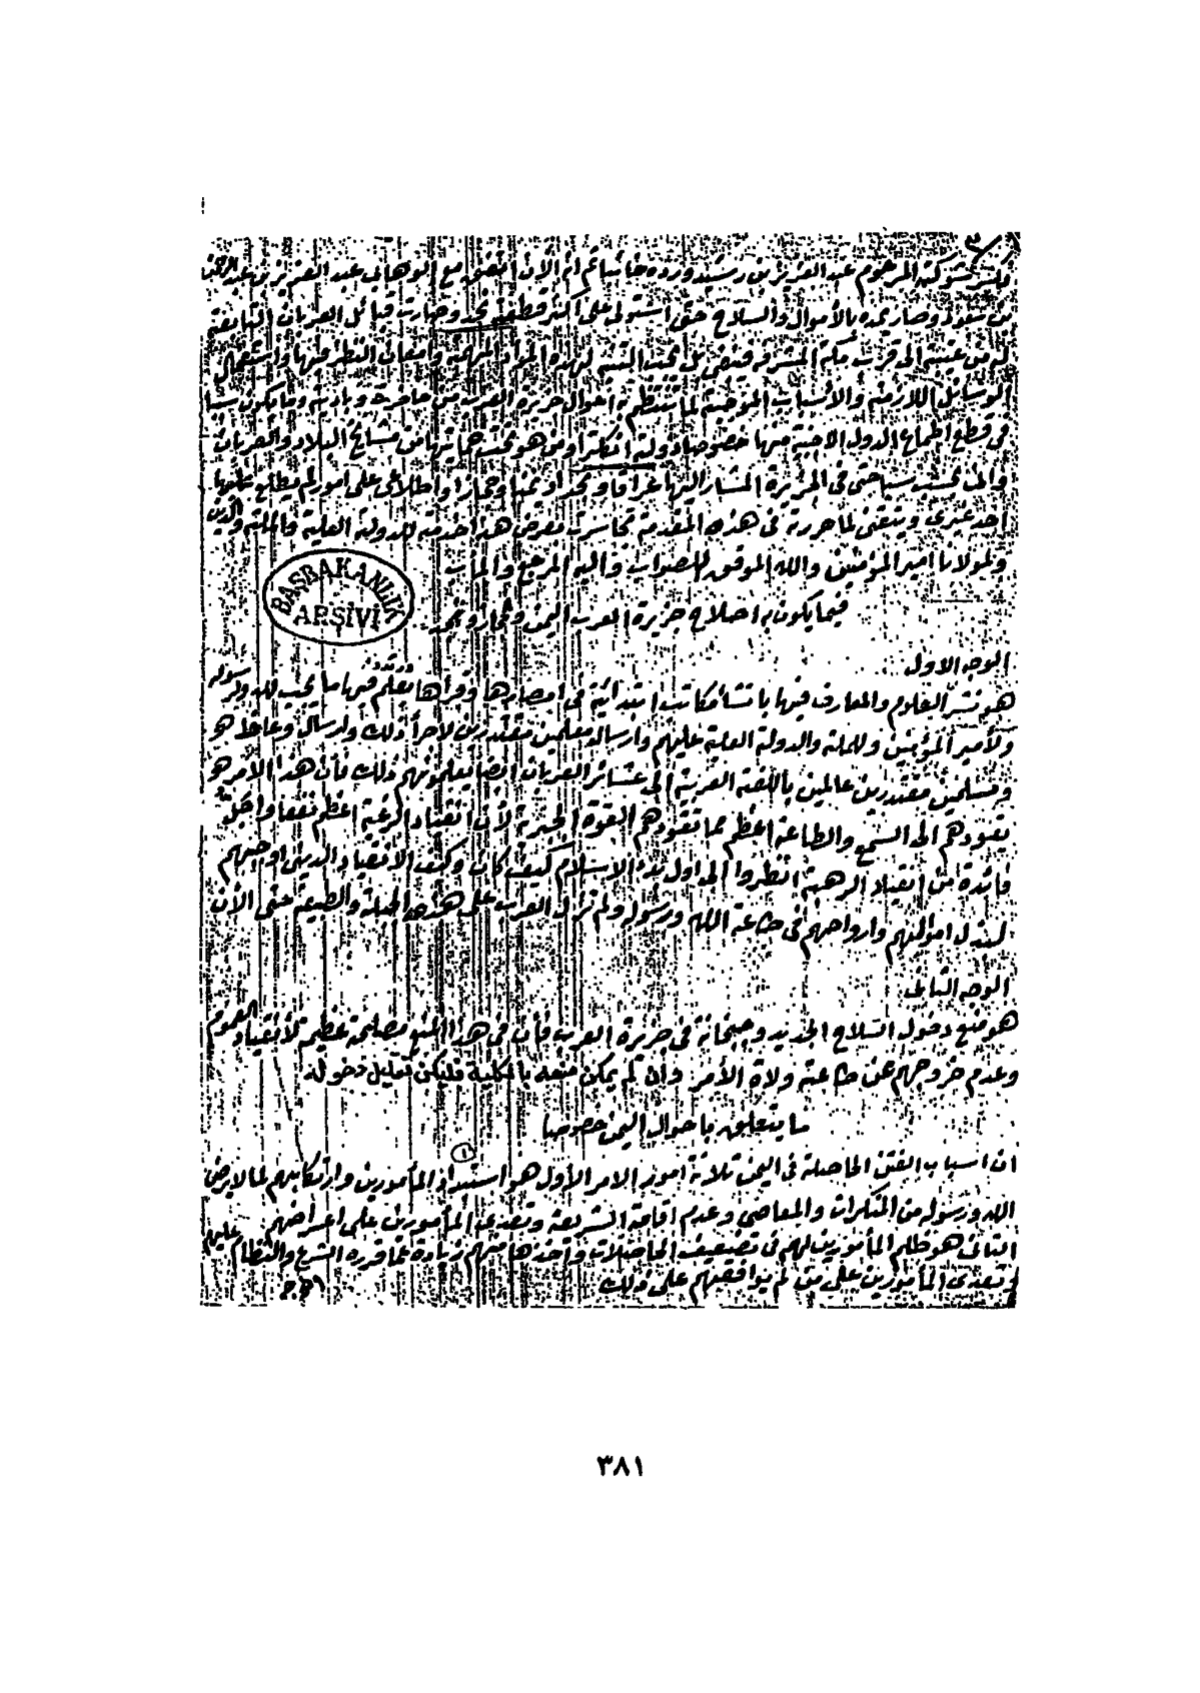 ٣
كسر شوكة المرحوم عبد العزيز بن رشيد ورده خائبا ثم أن الآن اتفق مع الوهابي عبد العزيز بن عبد الرحمن
بن سعود وصار يمده بالأموال والسلاح حتى استولى على أكثر قطعة نجد وصارت قبائل العربان التابعة
له من عتيبة الى قرب مكة المشرفة فنهض بي لهذه المواد المهمة وامعان النظر فيها واستعمال
الوسائل اللازمة والأسباب الموجبة لما ينتظم به أحوال جزيرة العرب من حاضرة وبادية وما يكون سببا
في قطع اطماع الدول الاجنبية منها خصوصا دولة انكلترا ومن هو تحت حمايتها من مشايخ البلاد والعربان
والى بحسب سياحتي في الجزيرة المشار اليها عراقا ونجدا ويمنا وحجازا واطلاعي على امور لم يطلع عليها
احد غيري ويتقني لما حررته في هذه المقدمة تجاسرت بعرض هذا خدمة للدولة العلية والملة والدين
ولمولانا امير المؤمنين والله الموفق للصواب واليه المرجع والمآب
BAŞBAKANLIK
ARŞİVİ
فيما يكون به اصلاح جزيرة العرب اليمن وحجاز ونجد
الوجه الاول
هو نشر العلوم والمعارف فيها بانشأ مكاتب ابتدائية في امصارها وقراها يعلم فيها ما يجب لله ولرسوله
ولأمير المؤمنين وللملة والدولة العلية عليهم وارسال معلمين مقتدرين لاجرأ ذلك وارسال وعاظ
ومسلمين مقتدرين عالمين باللغة العربية الى عشائر العربان ايضا يعلمونهم ذلك فأن هذا الأمر هو
يقودهم الى السمع والطاعة اعظم مما تقودهم القوة الجبرية لأن انقياد الرغبة اعظم نفعا واجل
فائدة من انقياد الرهبة انظروا الى اول بدء الاسلام كيف كان وكيف الانقياد الديني اوجبهم
لبذل اموالهم وارواحهم في طاعة الله ورسوله ولم تزل العرب على هذه الجبلة والطبيعة حتى الآن
الوجه الثاني
هو منع دخول السلاح الجديد وجبخانة في جزيرة العرب فأن في هذا المنع مصلحة عظيمة لأنقياد العموم
وعدم خروجهم عن طاعة ولاة الأمر وان لم يمكن منعه بالكلية فليكن تقليل دخوله
ما يتعلق باحوال اليمن خصوصا
ان اسباب الفتن الحاصلة في اليمن ثلاثة امور الامر الأول هو استبداد المأمورين وارتكابهم لما لا يرضي
الله ورسوله من المنكرات والمعاصي وعدم اقامة الشريعة وتعدي المأمورين على اعراضهم
الثاني هو ظلم المأمورين لهم في تضعيف الحاصلات وأخذها منهم زيادة عما قرره الشرع والنظام عليهم
وتعدي المأمورين على من لم يوافقهم على ذلك
٣٨١